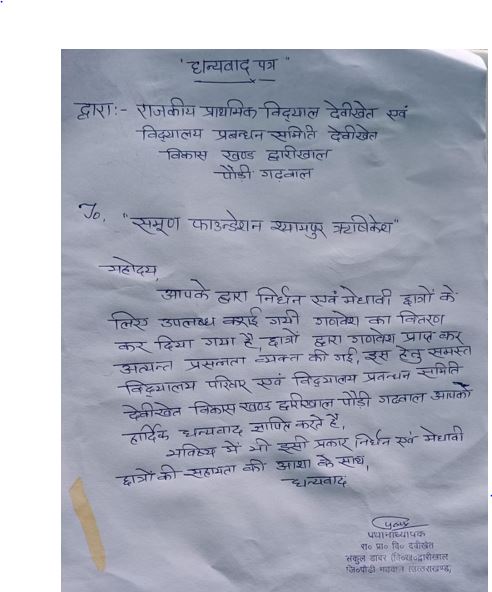 "धन्यवाद पत्र"
द्वारा:- राजकीय प्राथमिक विद्याल देवीखेत एवं
विद्यालय प्रबन्धन समिति देवीखेत
विकास खण्ड द्वारीखाल
पौड़ी गढवाल
To, "समूण फाउन्डेशन श्यामपुर ऋषिकेश"
महोदय,
आपके द्वारा निर्धन एवं मेधावी छात्रों के
लिए उपलब्ध कराई गयी गणवेश का वितरण
कर दिया गया है छात्रों द्वारा गणवेश प्राप्त कर
अत्यन्त प्रसन्नता व्यक्त की गई, इस हेतु समस्त
विद्यालय परिवार एवं विद्यालय प्रबन्धन समिति
देवीखेत विकास खण्ड द्वारीखाल पौड़ी गढवाल आपको
हार्दिक धन्यवाद ज्ञापित करते है,
भविष्य में भी इसी प्रकार निर्धन एवं मेधावी
छात्रों की सहायता की आशा के साथ,
धन्यवाद
प्रधानाध्यापक
रा० प्रा० वि० देवीखेत
संकुल डाबर (वि०ख०द्वारीखाल
जि०पौड़ी गढ़वाल (उत्तराखण्ड)